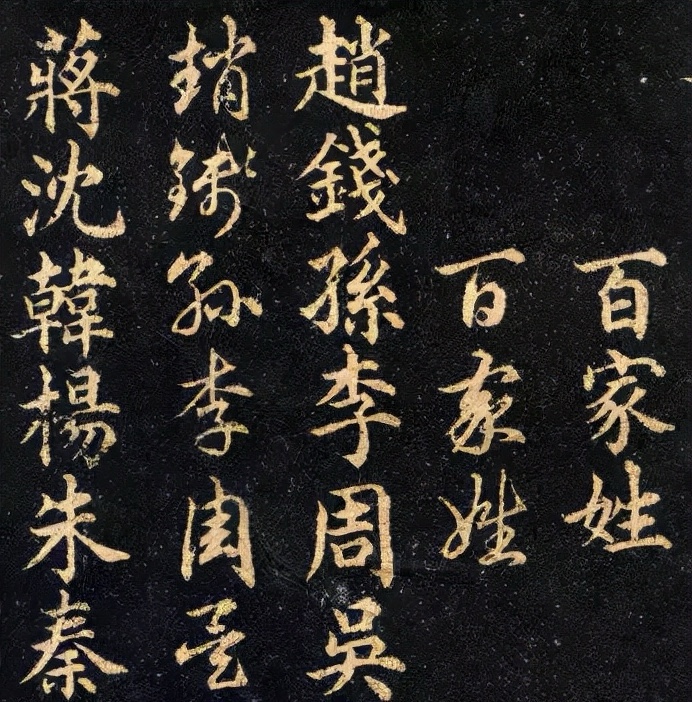 百家姓
百家姓
趙錢孫李周吳
趙錢孫李周吳
蔣沈韓楊朱秦